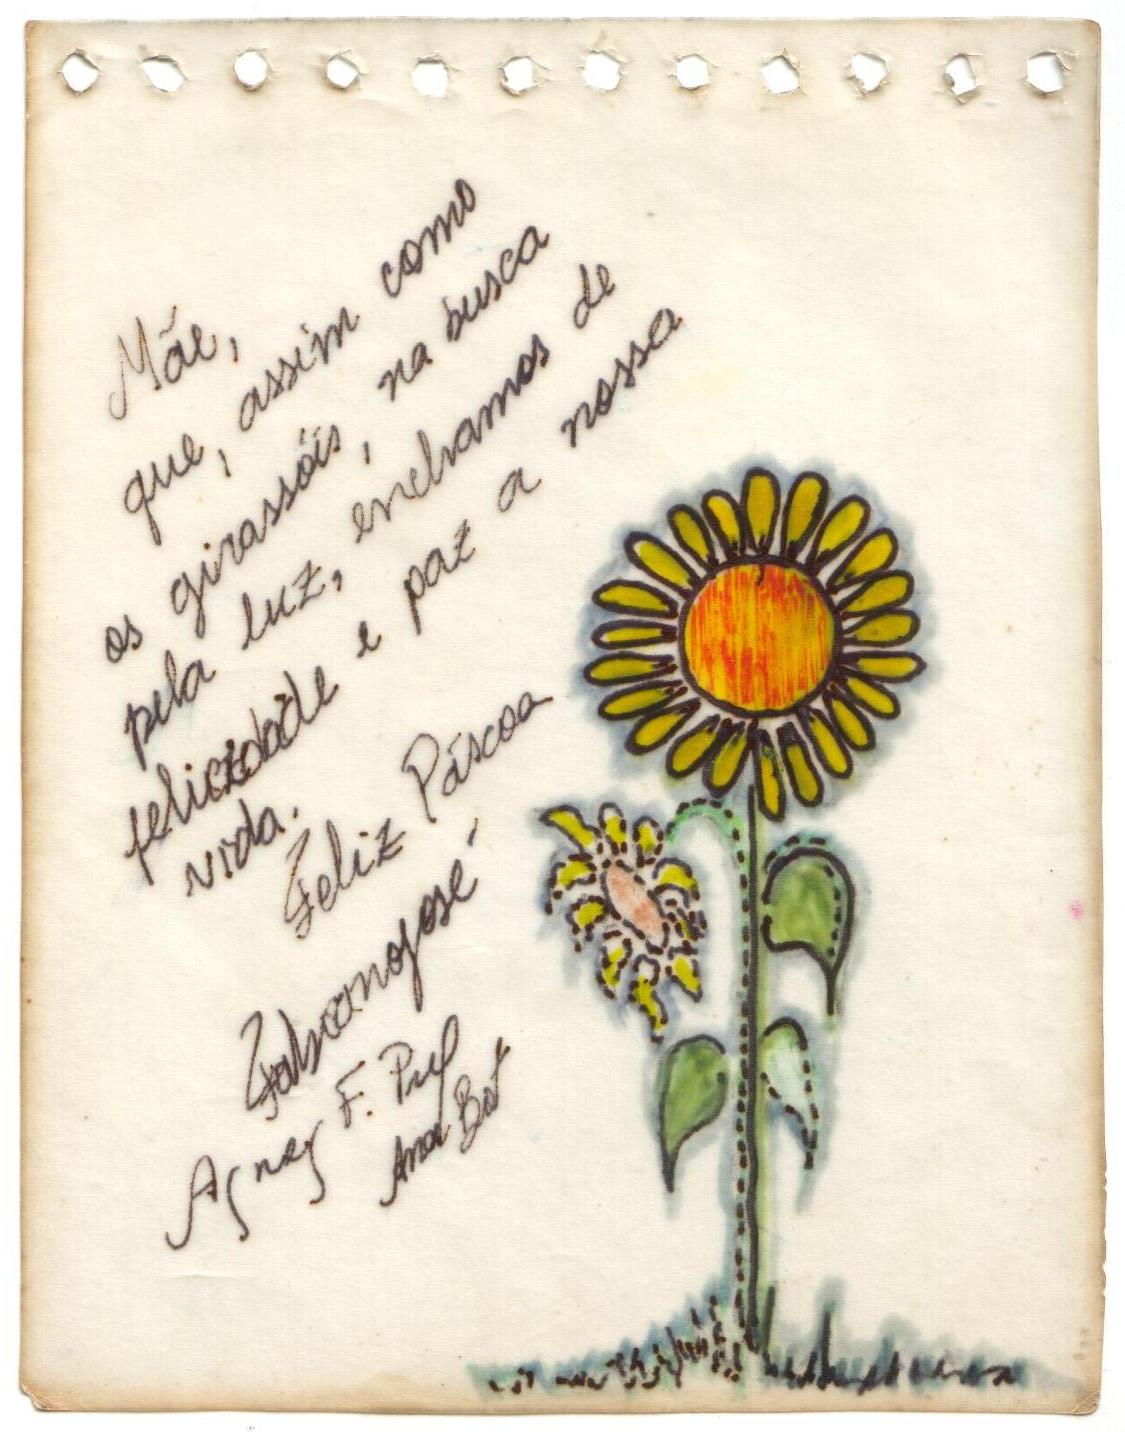 Mãe,
que, assim como
os girassóis, na busca
pela luz, enchamos de
felicidade e paz a nossa
vida.
Feliz Páscoa
Agney F.
Ana